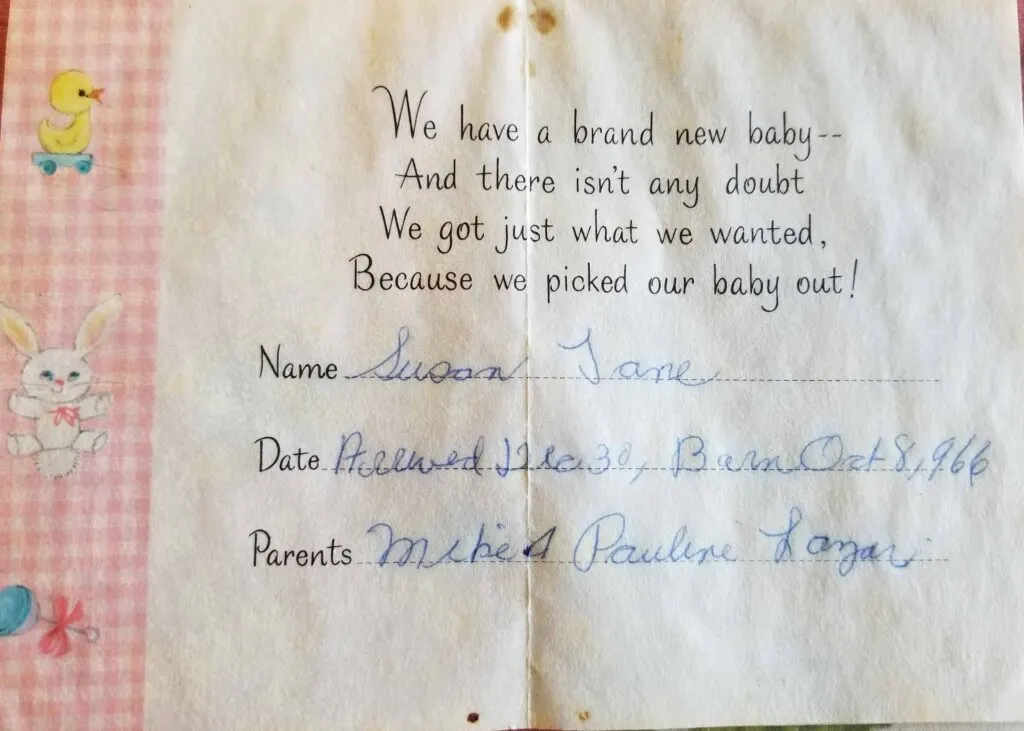 We have a brand new baby--
And there isn't any doubt
We got just what we wanted,
Because we picked our baby out!
Name Susan Jane
Date Arrived Dec 30, Born Oct 8, 966
Parents Mike & Pauline Lazar